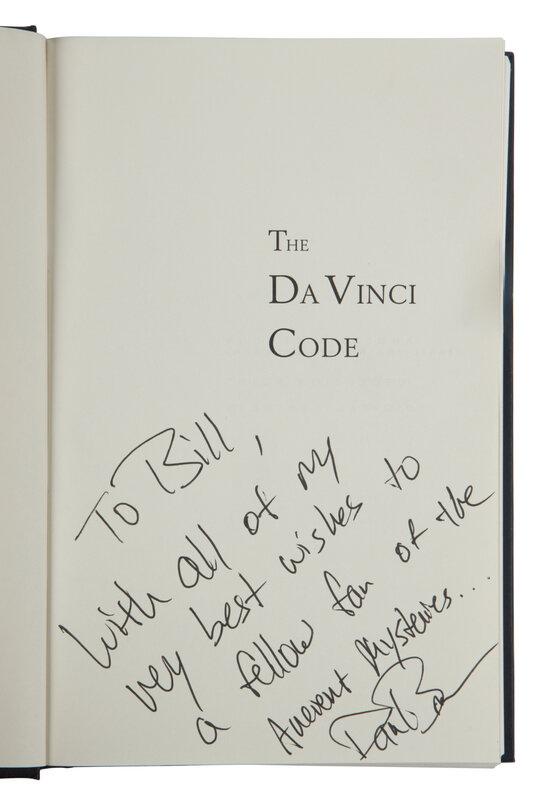 THE
DA VINCI
CODE
To Bill,
With all of my
very best wishes to
a fellow fan of the
Ancient Mysteries....
Dan Brown